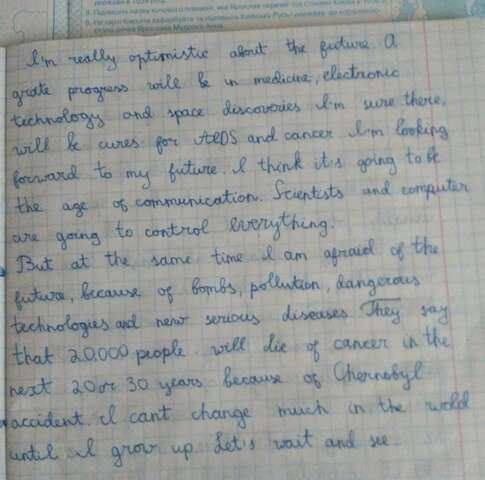 8. Підпишіть на контурній карті
9. На карті
I'm really optimistic about the future. A
grate progress will be in medicine, electronic
technology and space discoveries I'm sure there,
will be cures for AIDS and cancer I'm looking
forward to my future. I think it's going to be
the age of communication. Scientists and computer
are going to control everything.
But at the same time I am afraid of the
future, because of bombs, pollution, dangerous
technologies and new serious diseases. They say
that 20.000 people will die of cancer in the
next 20 or 30 years because of Chernobyl
accident. I cant change much in the wold
until I grow up. Let's wait and see.